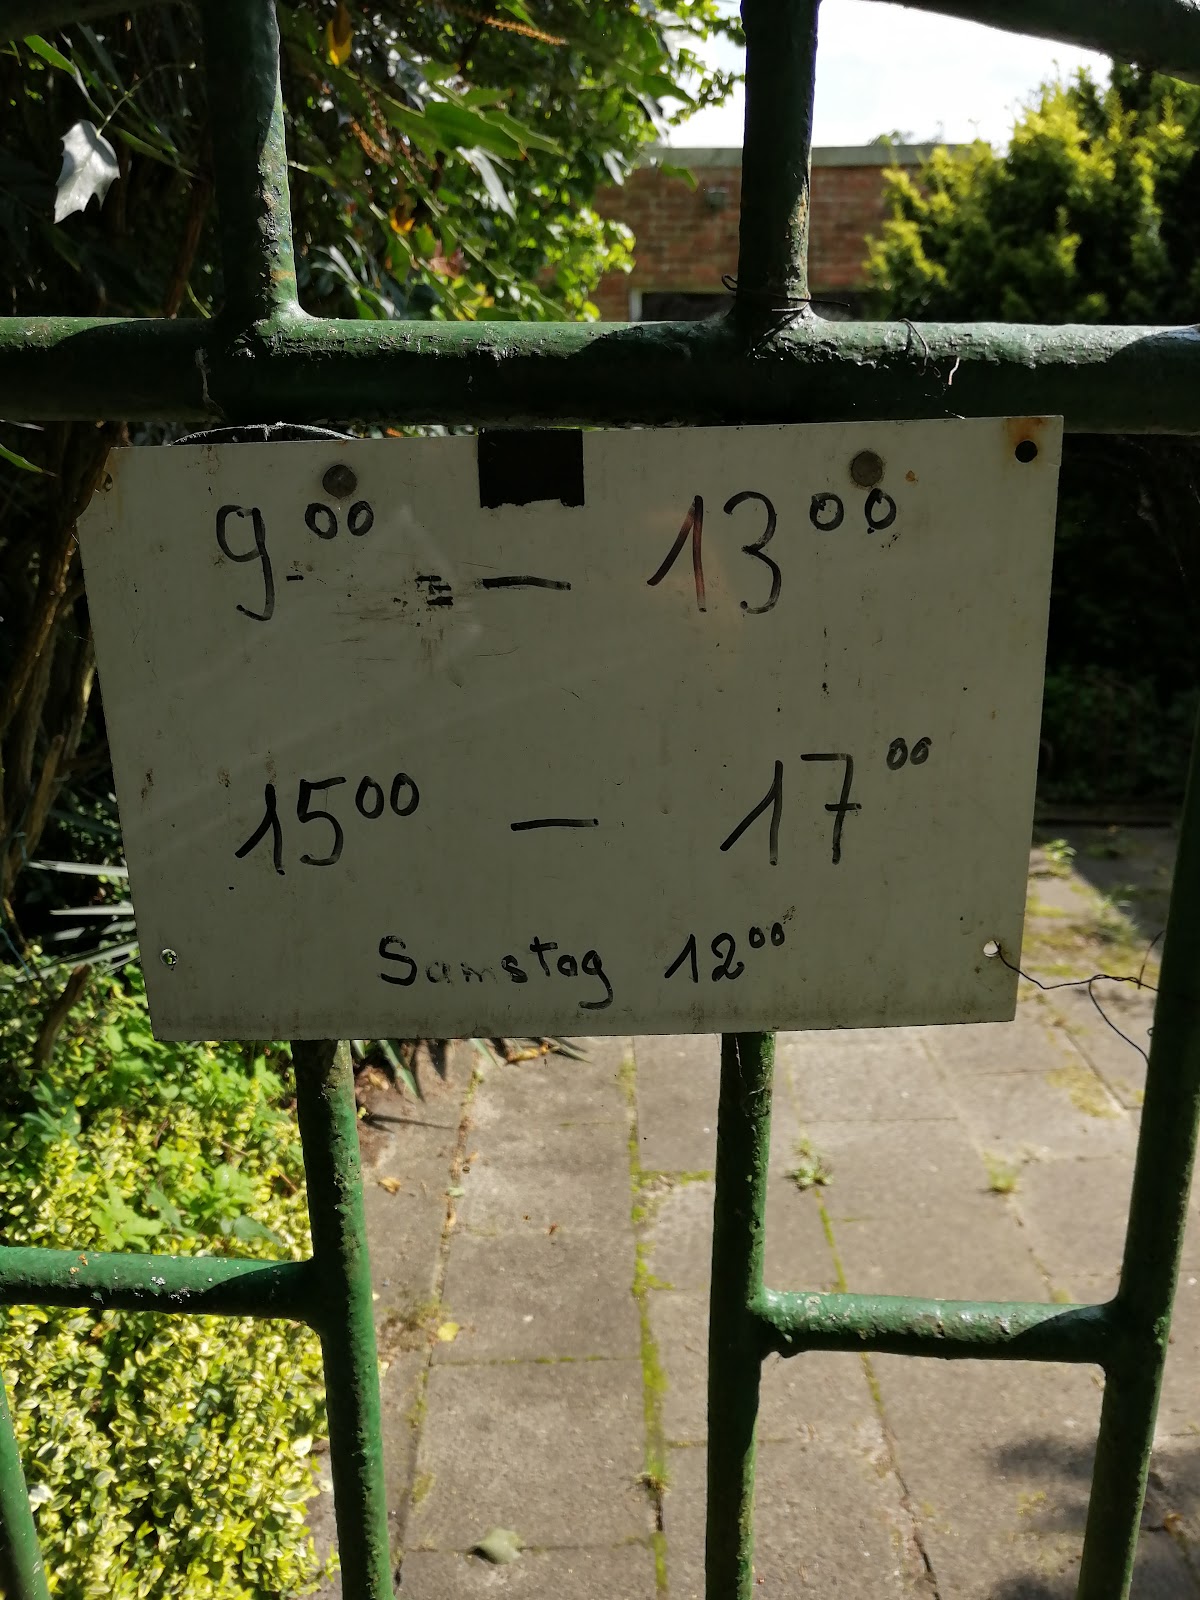 9⁰⁰ — 13⁰⁰
15⁰⁰ — 17⁰⁰
Samstag 12⁰⁰